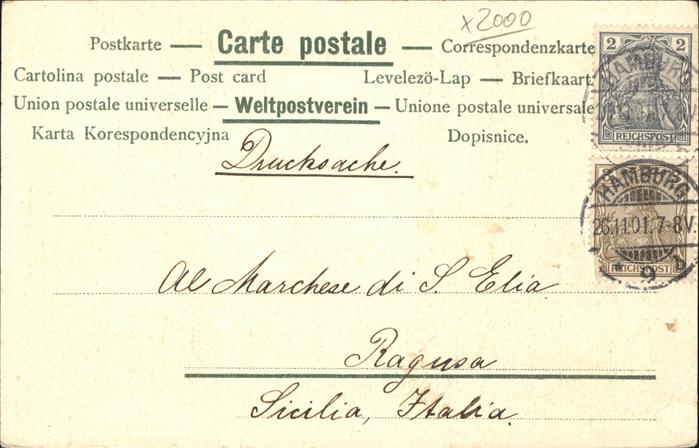 x2000
Postkarte — Carte postale — Correspondenzkarte
Cartolina postale — Post card Levelezö-Lap — Briefkaart
Union postale universelle — Weltpostverein — Unione postale universale
Karta Korespondencyjna Dopisnice.
Drucksache.
2 2
REICHSPOST
HAMBURG
26.11.01.7-8V.
REICHSPOST
* 9 b
Al Marchese di S. Elia
Ragusa
Sicilia, Italia.